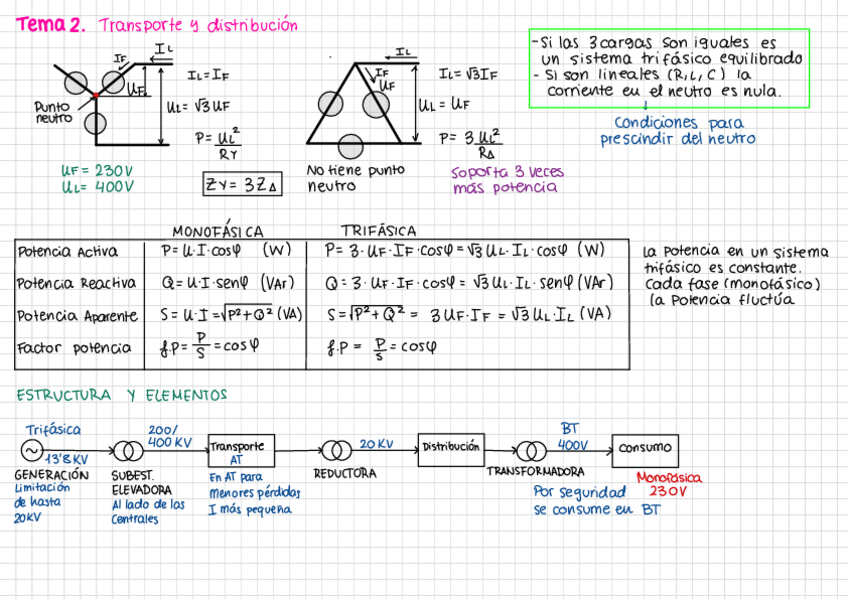 Tema 2. Transporte y distribución
IF
IL
UF
Punto
neutro
IL = IF
UL = √3 UF
P = UL²/RY
UF = 230V
UL = 400V
ZY = 3Z∆
IL
IF
UF
IL = √3 IF
UL = UF
P = 3 UL²/R∆
No tiene punto
neutro
Soporta 3 veces
más potencia
- Si las 3 cargas son iguales es
un sistema trifásico equilibrado
- Si son lineales (R, L, C) la
corriente en el neutro es nula.
↓
Condiciones para
prescindir del neutro
MONOFÁSICA TRIFÁSICA
Potencia Activa P = U·I·cosφ (W) P = 3·UF·IF·cosφ = √3 UL·IL·cosφ (W)
Potencia Reactiva Q = U·I·senφ (VAr) Q = 3·UF·IF·cosφ = √3 UL·IL·senφ (VAr)
Potencia Aparente S = U·I = √P²+Q² (VA) S = √P²+Q² = 3 UF·IF = √3 UL·IL (VA)
Factor potencia f.P = P/S = cosφ f.P = P/S = cosφ
La potencia en un sistema
trifásico es constante.
Cada fase (monofásico)
la potencia fluctúa
ESTRUCTURA Y ELEMENTOS
Trifásica
~
13'8 KV
GENERACIÓN
Limitación
de hasta
20KV
200/
400 KV
SUBEST.
ELEVADORA
Al lado de las
Centrales
Transporte
AT
En AT para
menores pérdidas
I más pequeña
REDUCTORA
20 KV
Distribución
TRANSFORMADORA
BT
400V
Por seguridad
se consume en BT
consumo
Monofásica
230V